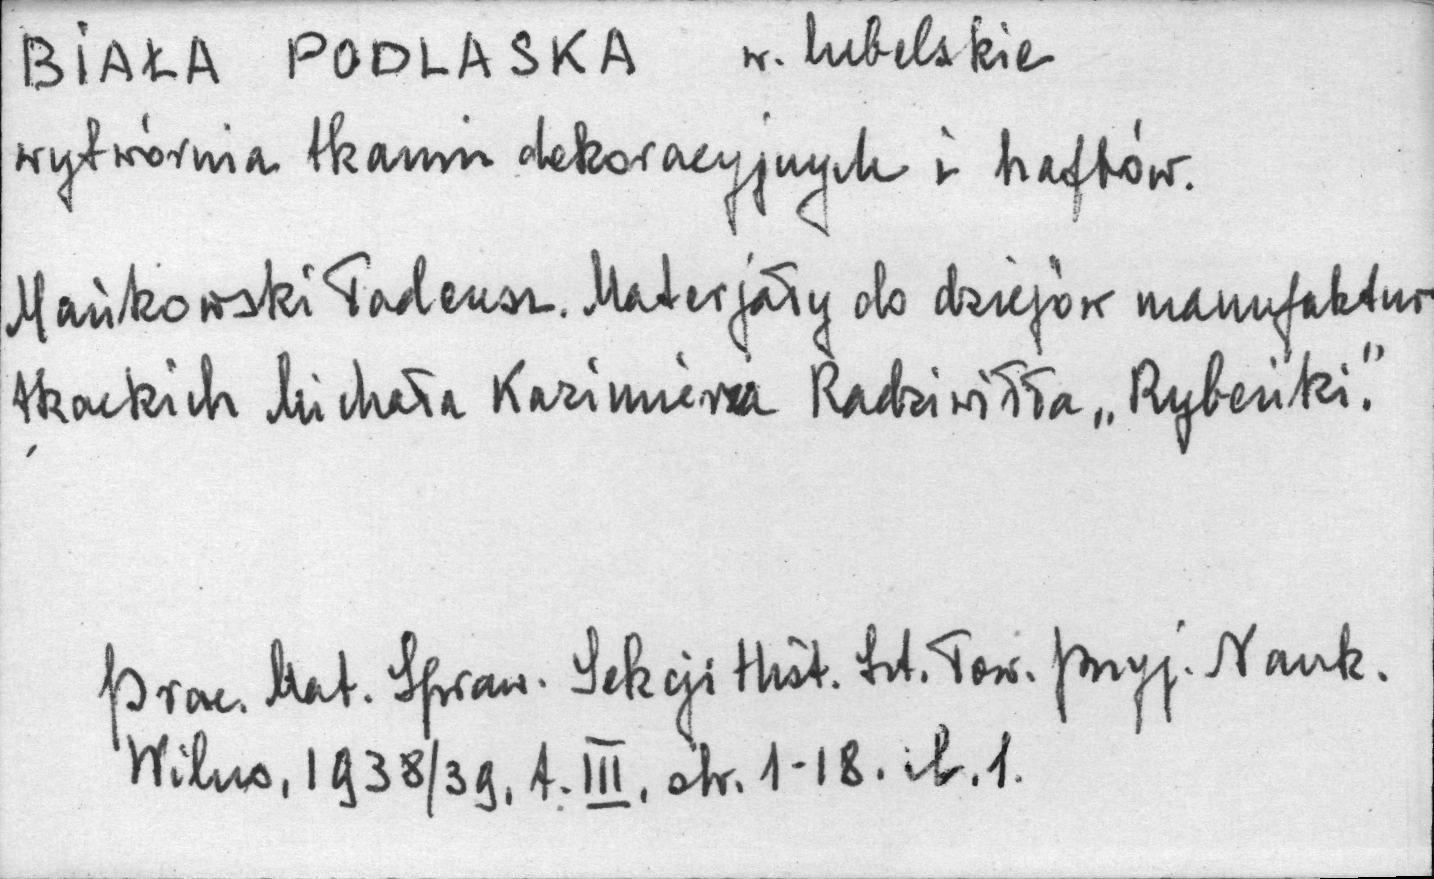 BIAŁA PODLASKA w. lubelskie
wytwórnia tkanin dekoracyjnych i haftów.
Mańkowski Tadeusz. Materjały do dziejów manufaktur
tkackich Michała Kazimierza Radziwiłła „Rybeńki."
Prac. Mat. Spraw. Sekcji Hist. Szt. Tow. Przyj. Nauk.
Wilno, 1938/39, t. III, str. 1-18. il. 1.